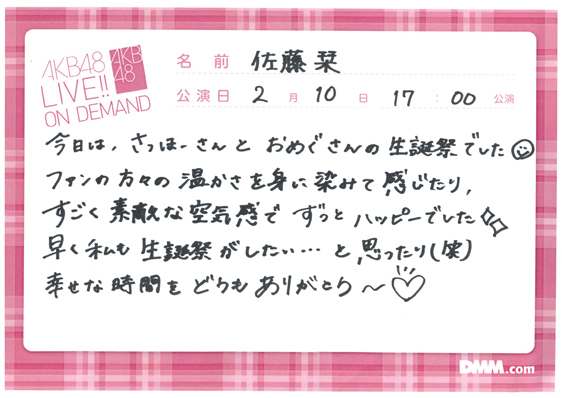 AKB48
LIVE!!
ON DEMAND
AKB
48
名前 佐藤栞
公演日 2月10日 17:00公演
今日は、さっほーさんと おめぐさんの生誕祭でした
ファンの方々の温かさを身に染みて感じたり、
すごく素敵な空気感で ずっとハッピーでした
早く私も生誕祭がしたい…と思ったり(笑)
幸せな時間をどうもありがとう〜♡
DMM.com